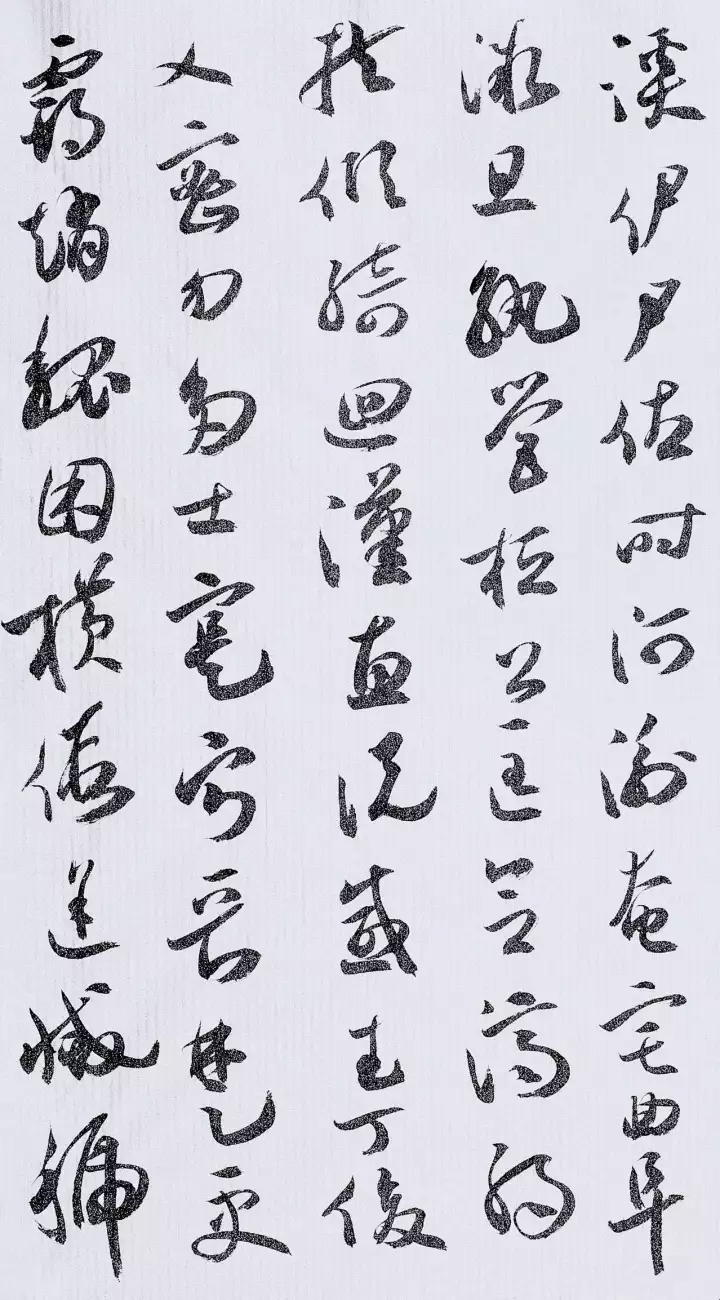 溪伊尹佐時阿衡奄宅曲阜
微旦孰營桓公匡合濟弱
扶傾綺迴漢惠說感武丁俊
乂密勿多士寔寧晉楚更
霸趙魏困橫假途滅虢